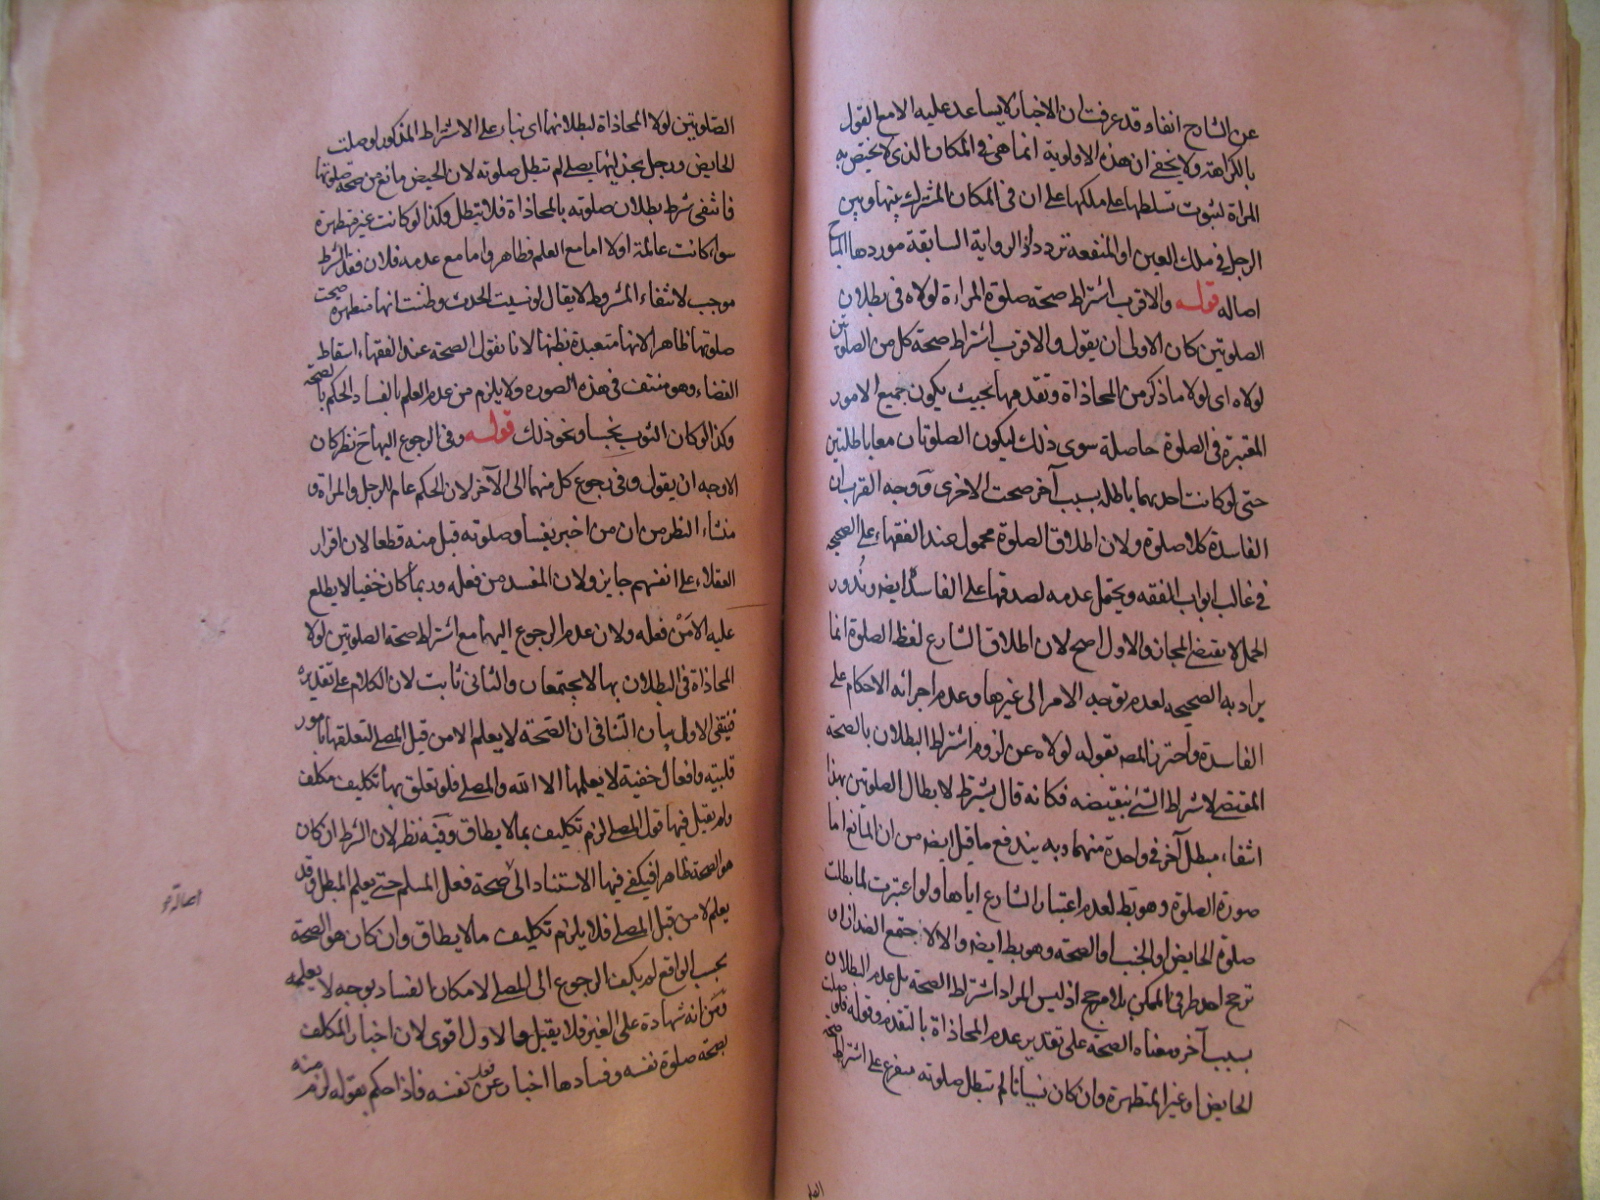 عن الشارح انفا وقد عرفت ان الاخبار لا يساعد عليه الا مع القول
بالكراهة ولا يخفى ان هذه الاولوية انما هى فى المكان الذى لا يختص به
المراة لثبوت تسلطها على ملكها على ان فى المكان المشترك بينها وبين
الرجل فى ملك العين او المنفعة تردد اذ الرواية السابقة موردها المباح
اصالة قوله والاقرب اشتراط صحة صلوة المراءة لولاه فى بطلان
الصلوتين كان الاولى ان يقول والاقرب اشتراط صحة كل من الصلوتين
لولاه اى لولا ما ذكر من المحاذاة وتقدمها بحيث يكون جميع الامور
المعتبرة فى الصلوة حاصلة سوى ذلك ليكون الصلوتان معا باطلتين
حتى لو كانت احديهما باطلة بسبب آخر صحت الاخرى ووجه القرب ان
الفاسدة كلا صلوة ولان اطلاق الصلوة محمول عند الفقهاء على الصحيحة
فى غالب ابواب الفقه ويحتمل عدمه لصدقها على الفاسدة ايضا وندور
الحمل لا يقتضى المجاز والاول اصح لان اطلاق الشارع لفظ الصلوة انما
يراد به الصحيحة لعدم توجه الامر الى غيرها وعدم اجرائه الاحكام على
الفاسدة واحترز المصه بقوله لولاه عن لزوم اشتراط البطلان بالصحة
المقتضى لاشتراط الشئ بنقيضه فكانه قال يشترط لابطال الصلوتين بهذا
انتفاء مبطل آخر فى واحدة منهما وبه يندفع ما قيل ايضا من ان المانع اما
صورة الصلوة وهو بط لعدم اعتبار الشارع اياها ولو اعتبرت لما بطلت
صلوة الحايض او الجنب او الصحة وهو بط ايضا والا لاجتمع الضدان او
ترجح احد طرفى الممكن بلا مرجح اذ ليس المراد اشتراط الصحة بل عدم البطلان
بسبب آخر ومعناه الصحة على تقدير عدم المحاذاة بالتقدم وقوله فلو صلت
الحايض او غير المتطهرة وان كان نسيانا لم تبطل صلوته متفرع على اشتراط صحة
الصلوتين لولا المحاذاة لبطلانهما اى بناء على الاشتراط المذكور لو صلت
الحايض ورجل بحذائها يصلى لم تبطل صلوته لان الحيض مانع من صحة صلوتها
فانتفى شرط بطلان صلوته بالمحاذاة فلا تبطل وكذا لو كانت غير متطهرة
سواء كانت عالمة او لا اما مع العلم فظاهر واما مع عدمه فلان فقد الشرط
موجب لانتفاء المشروط لا يقال لو نسيت الحدث وظنت انها متطهرة صحت
صلوتها ظاهرا لانها متعبدة بظنها لانا نقول الصحة عند الفقهاء اسقاط
القضاء وهو منتف فى هذه الصورة ولا يلزم من عدم العلم بالفساد الحكم بالصحة
وكذا لو كان الثوب نجسا ونحو ذلك قوله وفى الرجوع اليها ح نظر كان
الاوجه ان يقول وفى رجوع كل منهما الى الآخر لان الحكم عام للرجل والمراة و
منشاء النظر من ان من اخبر بفساد صلوته قبل منه قطعا لان اقرار
العقلاء على انفسهم جايز ولان المفسد من فعله وربما كان خفيا لا يطلع
عليه الا من فعله ولان عدم الرجوع اليهما مع اشتراط صحة الصلوتين لولا
المحاذاة فى البطلان بها لا يجتمعان والثانى ثابت لان الكلام على تقديره
فينتفى الاول بيان التنافى ان الصحة لا يعلم الا من قبل المصلى لتعلقها بامور
قلبية وافعال خفية لا يعلمها الا الله والمصلى فلو تعلق بها تكليف مكلف
ولم يقبل فيها قول المصلى لزم تكليف بما لا يطاق وفيه نظر لان الشرط ان كان
هو الصحة ظاهرا فيكفى فيها الاستناد الى صحة فعل المسلم حتى يعلم المبطل وقد
يعلم لا من قبل المصلى فلا يلزم تكليف ما لا يطاق وان كان هو الصحة
بحسب الواقع لم يكف الرجوع الى المصلى لامكان الفساد بوجه لا يعلمه
ومن انه شهادة على الغير فلا يقبل والاول اقوى لان اخبار المكلف
بصحة صلوة نفسه وفسادها اخبار عن فعل نفسه فاذا حكم بقوله لزم منه